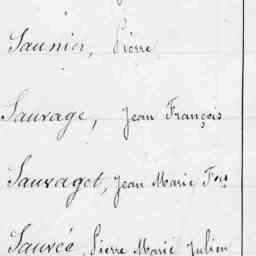 Saunier, Pierre
Sauvage, Jean François
Sauvaget, Jean Marie Fçois
Sauvée, Pierre Marie Julien